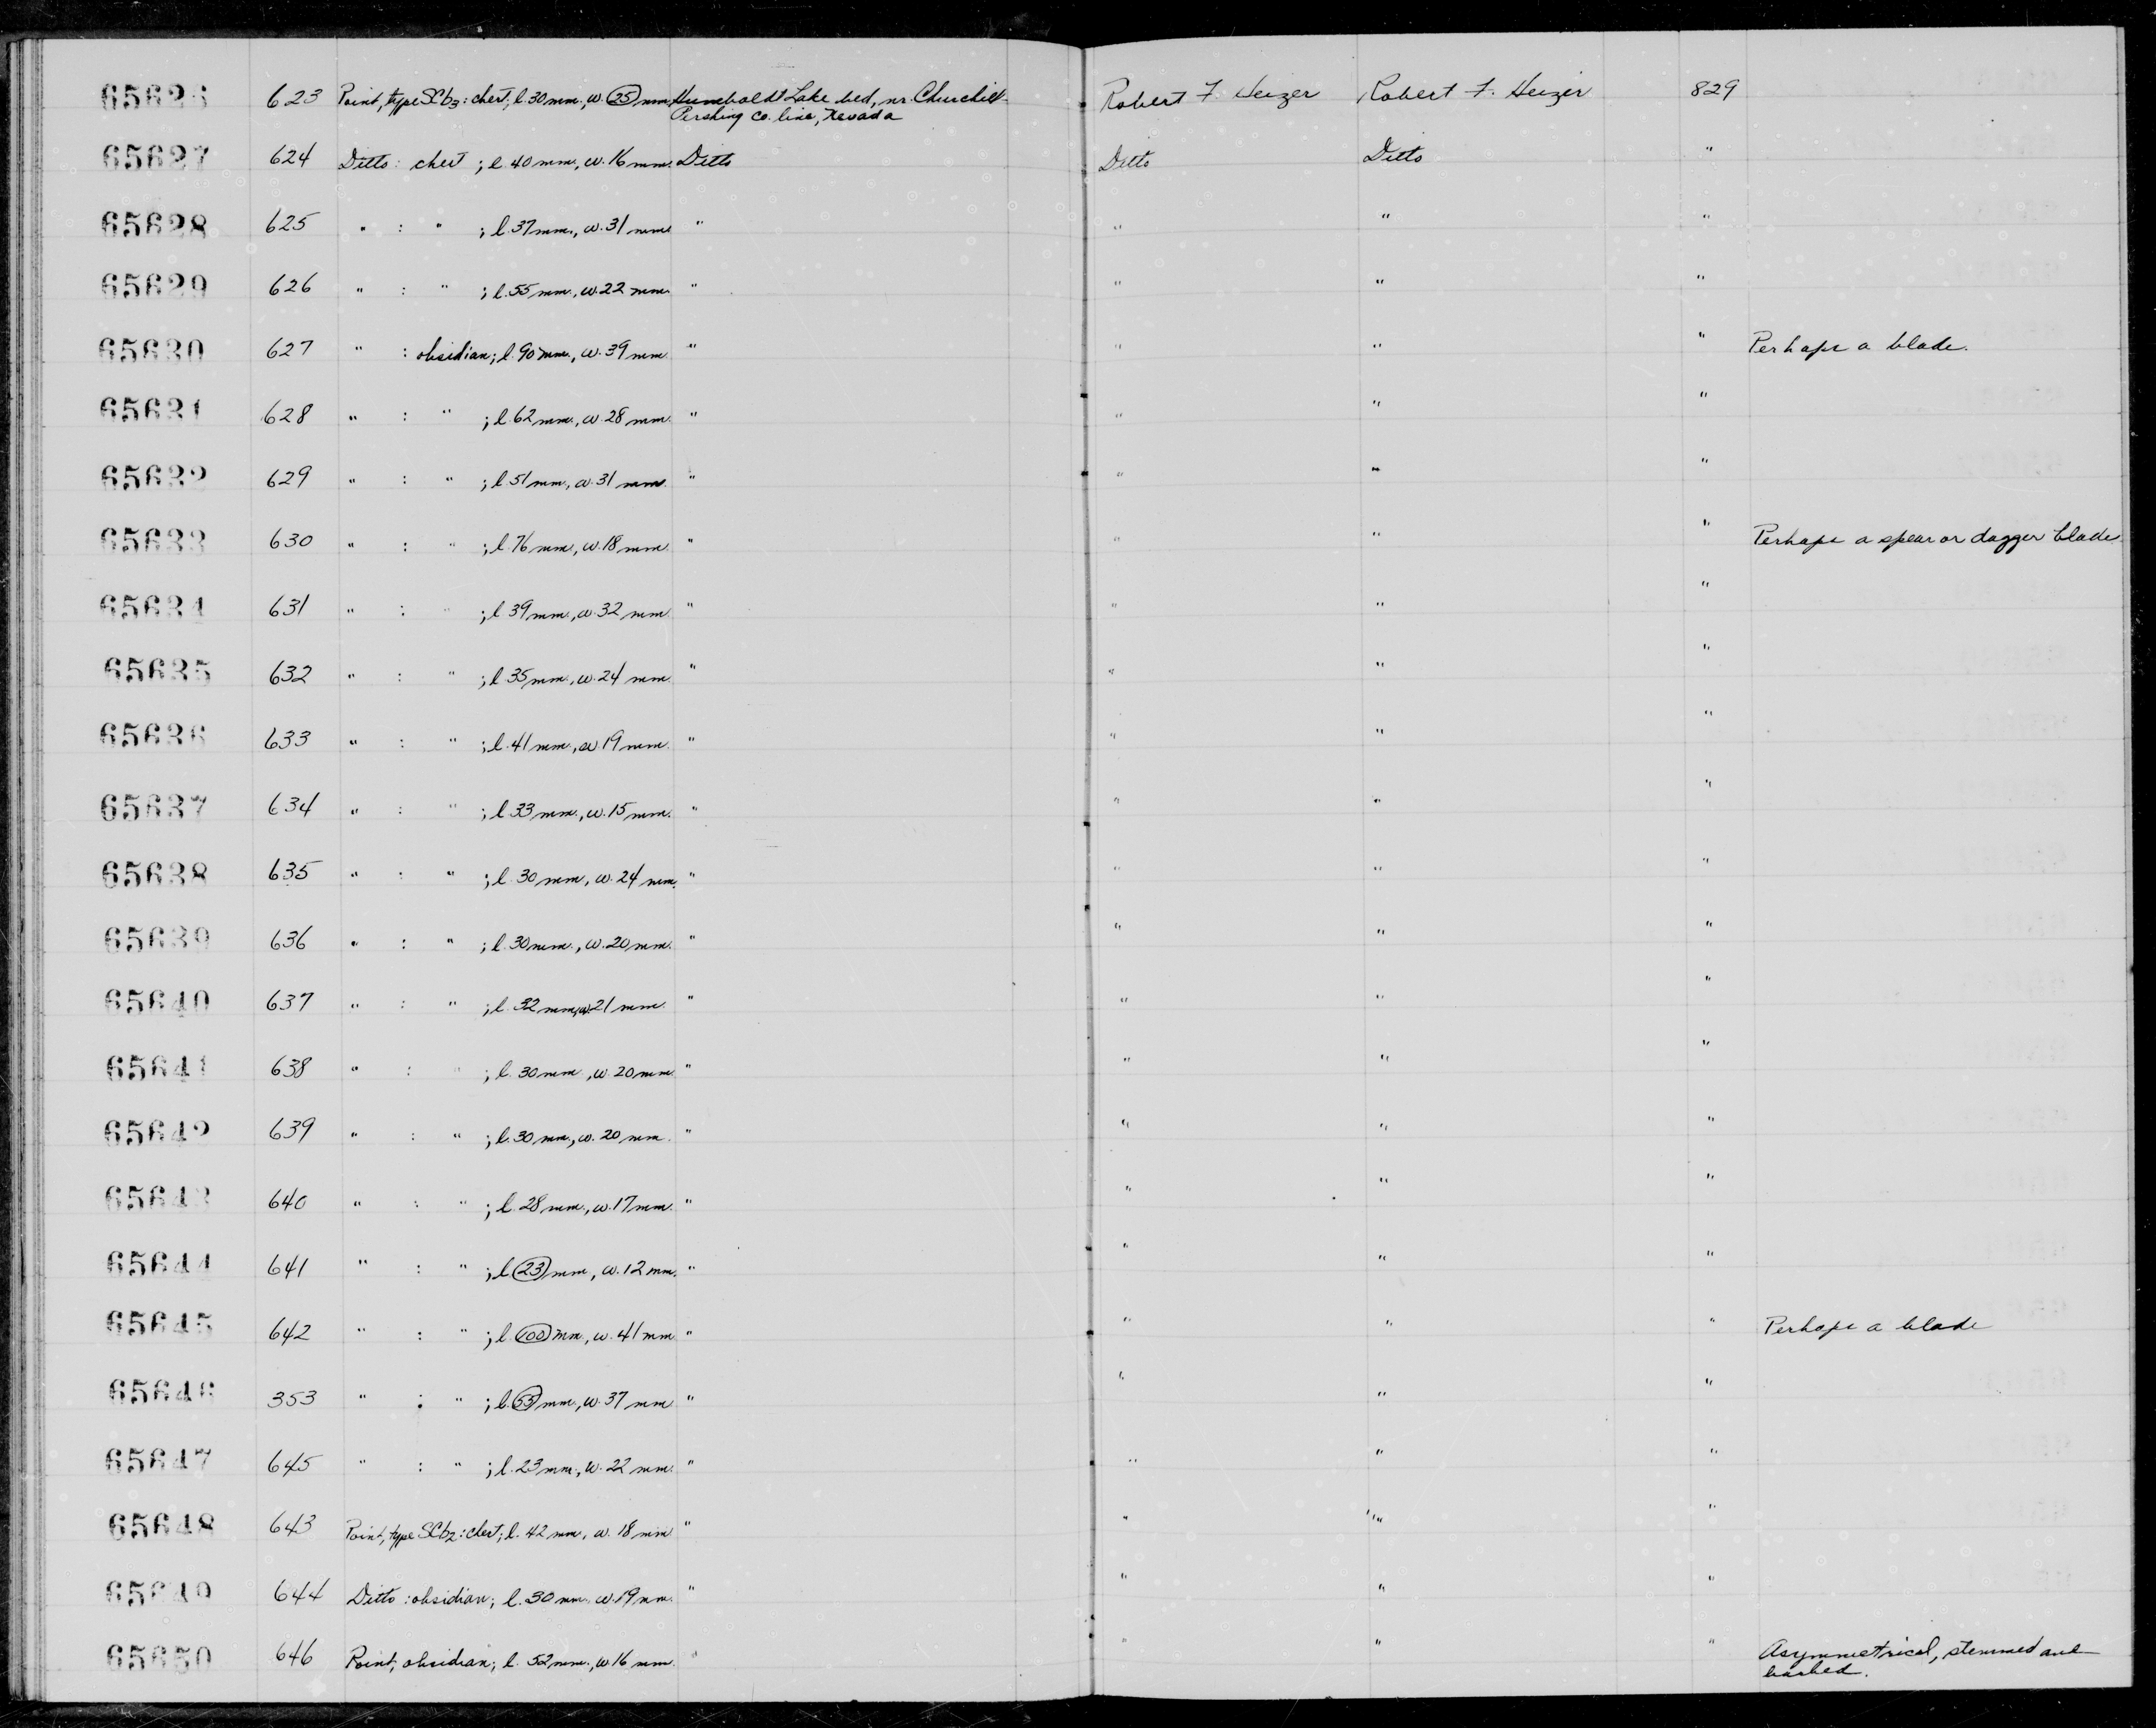 65626 623 Point, type SCb3: chert; l. 30 mm., w. 25 mm. Humboldt Lake bed, nr. Churchill- Robert F. Heizer Robert F. Heizer 829
Pershing Co. line, Nevada
65627 624 Ditto: chert ; l. 40 mm., w. 16 mm. Ditto Ditto Ditto "
65628 625 " : " ; l. 37 mm., w. 31 mm. " " " "
65629 626 " : " ; l. 55 mm., w. 22 mm. " " " "
65630 627 " : obsidian; l. 90 mm., w. 39 mm. " " " " Perhaps a blade.
65631 628 " : " ; l. 62 mm., w. 28 mm. " " " "
65632 629 " : " ; l. 51 mm., w. 31 mm. " " " "
65633 630 " : " ; l. 76 mm., w. 18 mm. " " " " Perhaps a spear or dagger blade
65634 631 " : " ; l. 39 mm., w. 32 mm. " " " "
65635 632 " : " ; l. 35 mm., w. 24 mm. " " " "
65636 633 " : " ; l. 41 mm., w. 19 mm. " " " "
65637 634 " : " ; l. 33 mm., w. 15 mm. " " " "
65638 635 " : " ; l. 30 mm., w. 24 mm. " " " "
65639 636 " : " ; l. 30 mm., w. 20 mm. " " " "
65640 637 " : " ; l. 32 mm., w. 21 mm. " " " "
65641 638 " : " ; l. 30 mm., w. 20 mm. " " " "
65642 639 " : " ; l. 30 mm., w. 20 mm. " " " "
65643 640 " : " ; l. 28 mm., w. 17 mm. " " " "
65644 641 " : " ; l. 23 mm., w. 12 mm. " " " "
65645 642 " : " ; l. 100 mm., w. 41 mm. " " " " Perhaps a blade
65646 353 " : " ; l. 53 mm., w. 37 mm. " " " "
65647 645 " : " ; l. 23 mm., w. 22 mm. " " " "
65648 643 Point, type SCb2: chert; l. 42 mm., w. 18 mm. " " " "
65649 644 Ditto : obsidian; l. 30 mm., w. 19 mm. " " " "
65650 646 Point, obsidian; l. 52 mm., w. 16 mm. " " " " Asymmetrical, stemmed and
barbed.